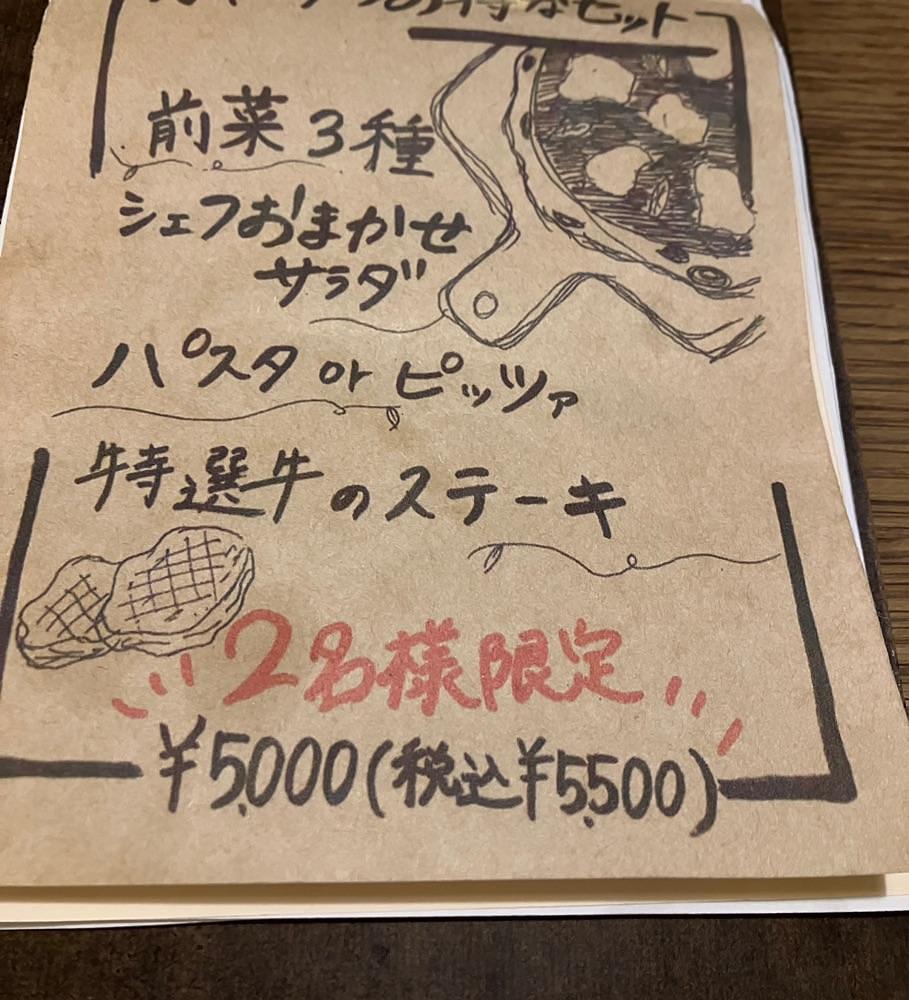 お得なセット
前菜3種
シェフおまかせ
サラダ
パスタ or ピッツァ
特選牛のステーキ
2名様限定
¥5,000(税込¥5,500)